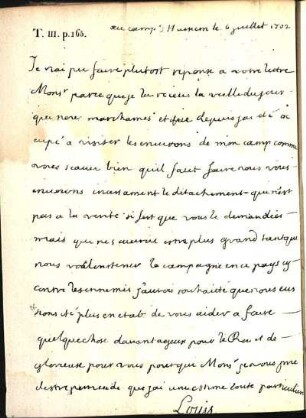 T. III. p. 165.
au camp d Huenem le 6 juillet 1702
Je nai peu faire plutost reponse a votre lettre
Monsr parce que je la receus la veille du jour
que nous marchames et que depuis jai été o
cupé a visiter les environs de mon camp comme
vous scavez bien quil faut faire nous vous
envoions incessament le detachement qui n'est
pas a la verité si fort que vous le demandiés
mais qui ne sauroit estre plus grand tant que
nous la campagne en ce pays cy
contre les ennemis j'aurois souhaité que nous eus
sions été plus en etat de vous aider a faire
quelque chose davantageux pour le Roi et de
glorieux pour vous pour moi Monsr je vous prie
destre persuadé que jai une estime toute particuliere
Louis